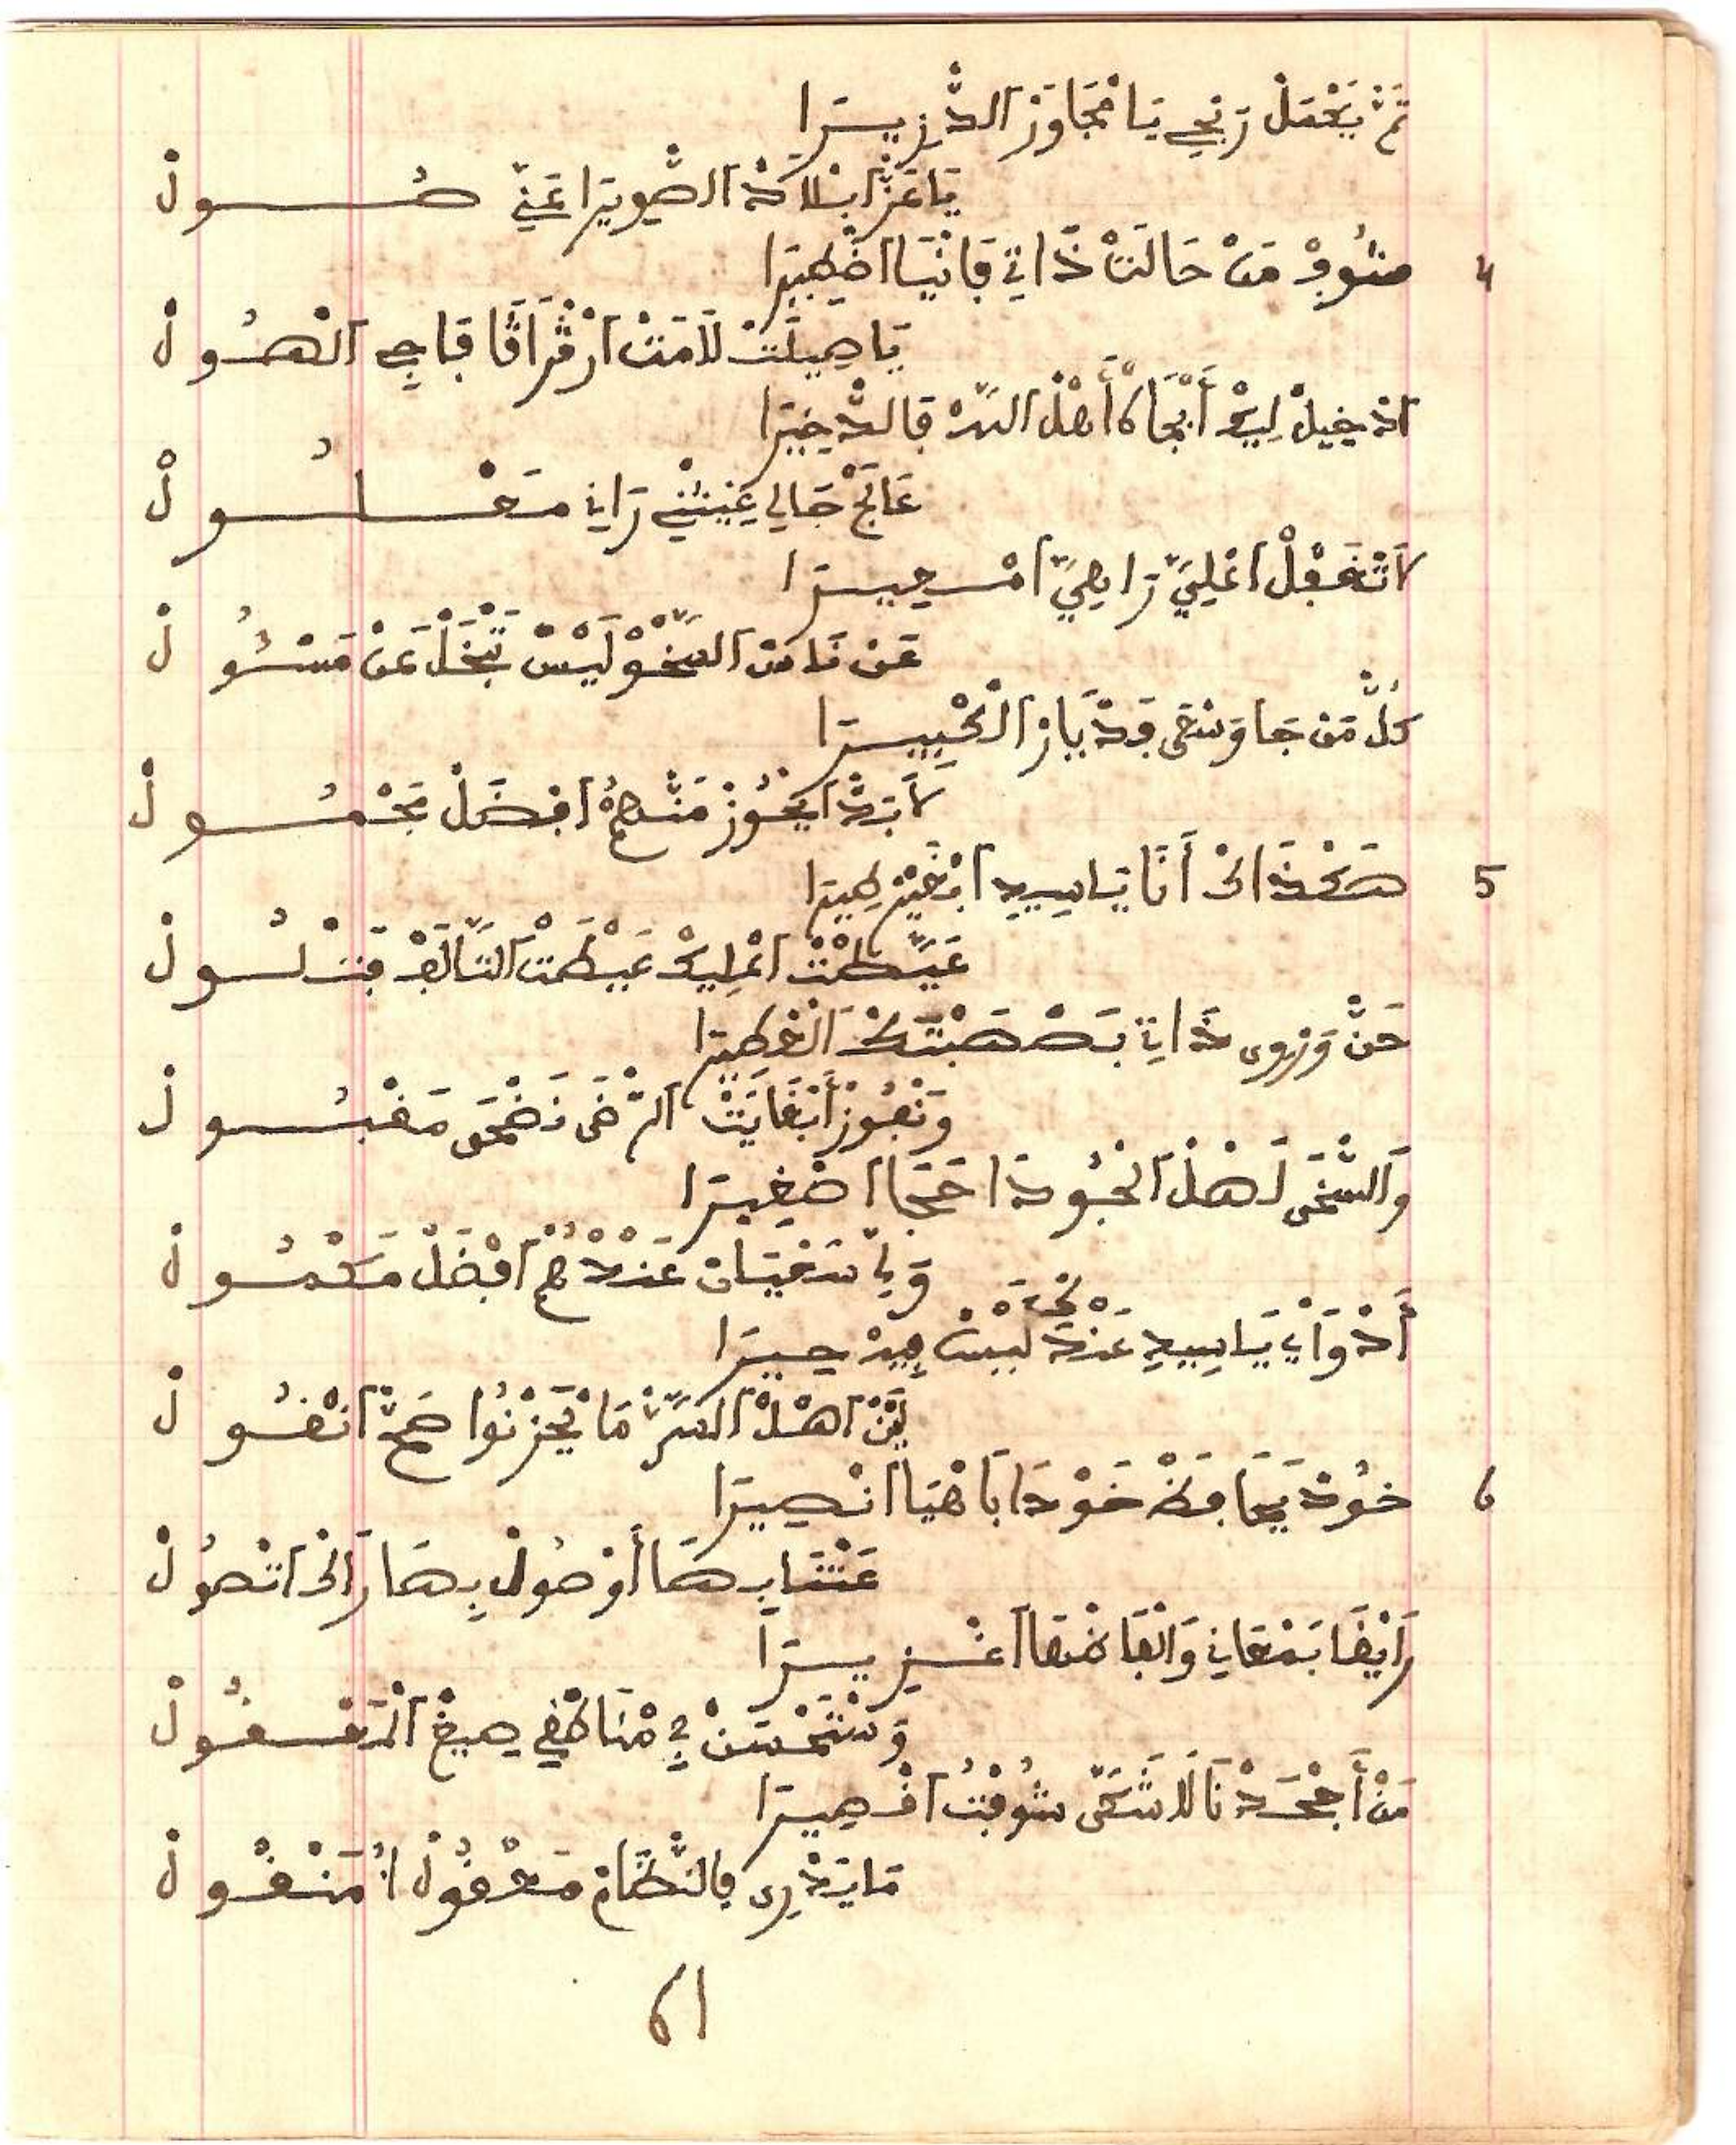 ثَمّْ يَكْمَلْ رَبْحِي يَا مْجَاوَزْ الدّْزِيرَا
يَا عَزّْ ابْلَادْ الصّْوِيرَا عَنِّي صُـــولْ
4 شُوفْ مَنْ حَالَتْ ذَاتِي فَانْيَا اضْهِيرَا
يَا صِيلَتْ لَامَتْ ارْقْرَاقَا فَاجِي الْهُـولْ
ادْخِيلْ لِيكْ أَبْجَاهْ أَهْلْ السّرْ فَالدّْخِيرَا
عَالَجْ حَالِي غِيثْنِي رَانِي مَعْـلُـولْ
لَا تَغْفَلْ اعْلِيَّ رَاهِيَّ امْسِيرَا
مَنْ نَاسْ السّْخُو لَيْسْ تَبْخَلْ عَنْ مَسْئُولْ
كُلّْ مَنْ جَا وَسْعَى قَدْ بَازْ الْحْبِيرَا
لَا بَدّْ ايْحُوزْ مَنْهُمْ افْضَلْ مَحْمُـولْ
5 هَكْذَاكْ أَنَا يَاسِيدِي ابْغَيْرْ طِيرَا
عَيَّطْتْ اعْلِيكْ عَيْطَتْ التَّالَفْ فَتْلُـولْ
حَنّْ وَرْوِي ذَاتِي بَصْهَبْتَكْ الْعْطِيرَا
وَنْفُوزْ أَبْغَايَتْ الرّْضَى نَضْحَى مَقْبُـولْ
وَالسّْخَى لَهْلْ الْجُودَا حَجَا اصْغِيرَا
وَلِّي سَخْيَانْ عَنْدْهُمْ افْضَلْ مَكْمُـولْ
أَدْوَايَ يَاسِيدِي عَنْدَكْ لَيْسْ فِيهْ حِيرَا
لَنّْ اهْلْ السَّرّْ مَا يْحَزْنُوا صَحّْ انْقُـولْ
6 خُودْ يَحَافَظْ خَوْدَا بَاهْيَا انْصِيرَا
عَتْنَا بِهَا أُوصُولْ بِهَا رَاكْ اتْصُولْ
رَايْقَا بَمْعَانِي وَالْفَاضْهَا اغْـزِيرَا
وَسْتَحْسَنْ فِي مْنَاطْقِي صِيغْ الْمَقُـولْ
مَنْ أَجْحَدْنَا لَا شَكَّ شُوفْتُ اقْصِيرَا
مَا يَدْرِي فَالنّْظَامْ مَعْقُولْ اُمَنْقُـولْ
61